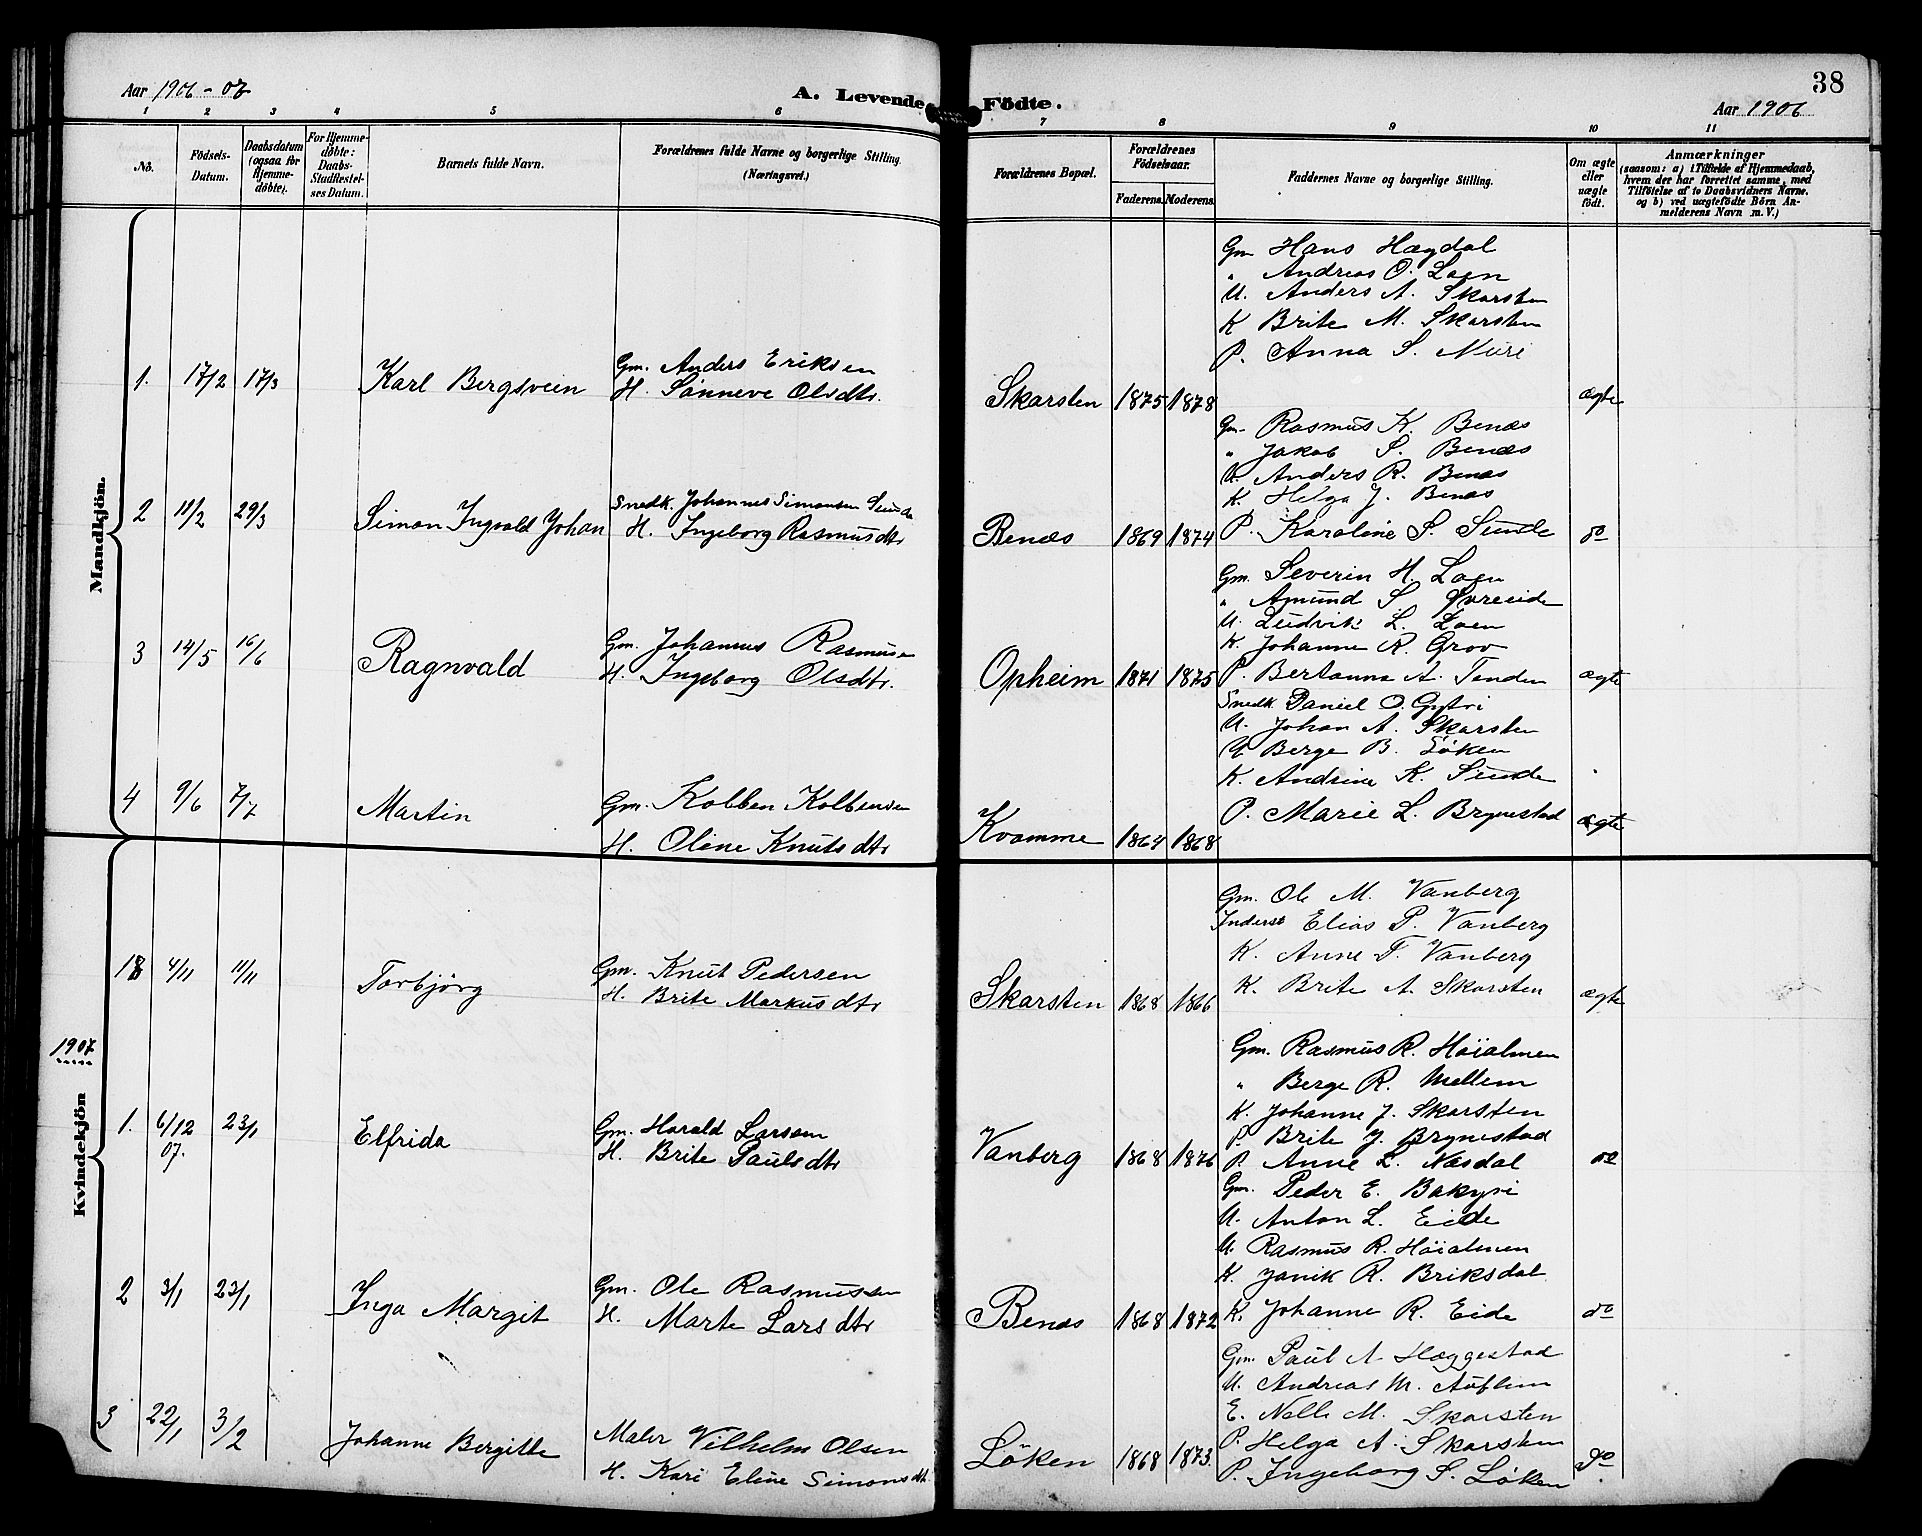 Aar 1906-07
A. Levende Födte.
38
Aar 1906
1 2 3 4 5 6 7 8 9 10 11
No.
Födsels-Datum.
Daabsdatum (ogsaa for Hjemme-döbte).
For Hjemme-döbte: Daabs-Stadfæstel-ses Datum.
Barnets fulde Navn.
Forældrenes fulde Navne og borgerlige Stilling. (Næringsvei.)
Forældrenes Bopæl.
Forældrenes Födselsaar.
Faderens. Moderens.
Faddernes Navne og borgerlige Stilling.
Om ægte eller uægte födt.
Anmærkninger
(saasom: a) i Tilfælde af Hjemmedaab, hvem der har forrettet samme, med Tilföielse af to Daabsvidners Navne, og b) ved uægtefödte Börn Anmelderens Navn m. V.)
Mandkjön.
Gm Hans Hægdal
" Andreas O. Loen
U. Anders A. Skarsten
K Brite M. Skarsten
P. Anna S. Muri
1. 17/2 17/3 Karl Bergsvein
Gm. Anders Eriksen
H. Sønneve Olsdtr.
Skarsten 1875 1878 ægte
Gm. Rasmus K. Benæs
" Jakob S. Benæs
U. Anders R. Benæs
K. Helga J. Benæs
P. Karoline S. Sunde
2 11/2 29/3 Simon Ingvald Johan
Snedk. Johannes Simonsen Sunde
H. Ingeborg Rasmusdtr
Benæs 1869 1874 do
Gm. Severin H. Loen
" Amund S. Øvreeide
U. Ludvik L. Loen
K. Johanne R. Grov
P. Bertanna A. Tenden
3 14/5 16/6 Ragnvald
Gm. Johannes Rasmusen
H. Ingeborg Olsdtr.
Opheim 1871 1875 ægte
Snedk Daniel O. Gytri
U. Johan A. Skarsten
U Berge B. Løken
K. Andrine K. Sunde
P. Marie L. Brynestad
4 9/6 7/7 Martin
Gm. Kolben Kolbensen
H. Oline Knutsdtr
Kvamme 1864 1868 ægte
Kvindekjön
Gm. Ole M. Vanberg
Inderst Elias P. Vanberg
K. Anne T. Vanberg
K. Brite A. Skarsten
18 4/11 11/11 Torbjörg
Gm. Knut Pedersen
H. Brite Markusdtr
Skarsten 1868 1866 ægte
1907
Gm. Rasmus R. Høialmen
" Berge R. Mellem
K. Johanne J. Skarsten
P. Brite J. Brynestad
P. Anne L. Næsdal
1. 6/12 07. 23/1 Elfrida
Gm. Harald Larsen
H. Brite Paulsdtr
Vanberg 1868 1876 do
Gm. Peder E. Bakyri
U. Anton L. Eide
U. Rasmus R. Høialmen
K. Janik R. Briksdal
K. Johanne R. Eide
2 3/1 23/1 Inga Margit
Gm. Ole Rasmussen
H. Marte Larsdtr
Benæs 1868 1872 do
Gm. Paul A Hæggestad
U. Andreas M.
E. Nelle M. Skarsten
P. Helga A. Skarsten
P. Ingeborg S. Løken
3 22/1 3/2 Johanne Bergitte
Maler Vilhelm Olsen
H. Kari Eline Simonsdtr.
Löken 1868 1873. do